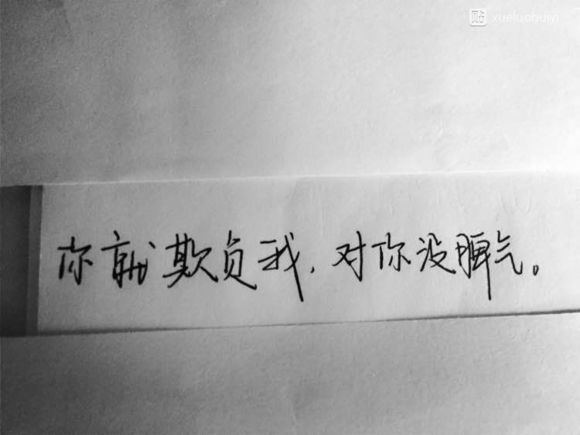 贴 xueluohuim
你就欺负我，对你没脾气。